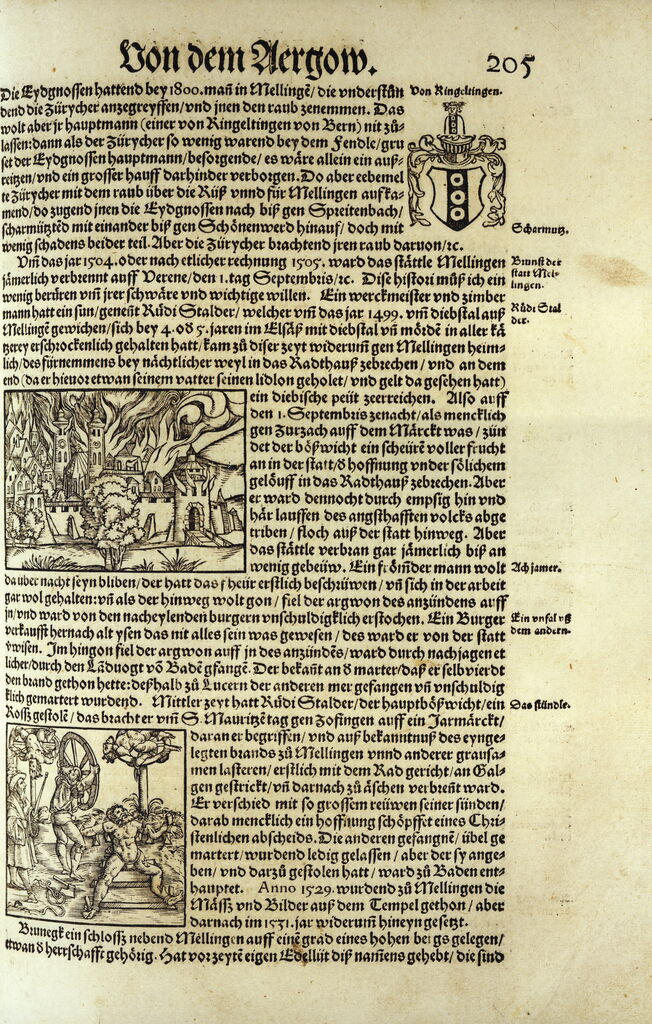 Von dem Aergow.
205
Die Eydgnossen hattend bey 1800. mañ in Mellingẽ/ die vnderstůn
dend die Zürycher anzegreyffen/ vnd jnen den raub zenemmen. Das
wolt aber jr hauptmann (einer von Ringeltingen von Bern) nit zů-
lassen: dann als der Zürycher so wenig warend bey dem Fendle/ gru
set der Eydgnossen hauptmann/ besorgende/ es wäre allein ein auf-
reitzen/ vnd ein grosser hauff darhinder verborgen. Do aber eebemel
te Zürycher mit dem raub über die Rüß vnnd für Mellingen aufka-
mend/ do zugend jnen die Eydgnossen nach biß gen Spreitenbach/
scharmütztẽd mit einander biß gen Schönenwerd hinauf/ doch mit
wenig schadens beider teil. Aber die Zürycher brachtend jren raub daruon/ ꝛc.
Von Ringeltingen.
Scharmutz.
Vm̃ das jar 1504. oder nach etlicher rechnung 1505. ward das stättle Mellingen
jämerlich verbrennt auff Verene/ den 1. tag Septembris/ ꝛc. Dise histori můß ich ein
wenig berüren vm̃ jrer schwäre vnd wichtige willen. Ein werckmeister vnd zimber
mann hatt ein sun/ genent Růdi Stalder/ welcher vm̃ das jar 1499. vm̃ diebstal auß
Mellingẽ gewichen/ sich bey 4. oð 5. jaren im Elsäß mit diebstal vñ mördẽ in aller kä
tzerey erschrockenlich gehalten hatt/ kam zů diser zeyt widerum̃ gen Mellingen heim-
lich/ des fürnemmens bey nächtlicher weyl in das Radthauß zebrechen/ vnd an dem
end (da er hieuor etwan seinem vatter seinen lidlon geholet/ vnd gelt da gesehen hatt)
Brunst der
statt Mel-
lingen.
Růdi Stal
der.
ein diebische peüt zeerreichen. Also auff
den 1. Septembris zenacht/ als mencklich
gen Zurzach auff dem Märckt was/ zün
det der bößwicht ein scheürẽ voller frucht
an in der statt/ ð hoffnung vnder sölichem
gelöuff in das Radthauß zebrechen. Aber
er ward dennocht durch empsig hin vnd
här lauffen des angsthafften volcks abge
triben/ floch auß der statt hinweg. Aber
das stättle verbran gar jämerlich biß an
wenig gebeüw. Ein frömder mann wolt
da über nacht seyn bliben/ der hatt das fheür erstlich beschrüwen/ vñ sich in der arbeit
gar wol gehalten: vñ als der hinweg wolt gon/ fiel der argwon des anzündens auff
jn/ vnd ward von den nacheylenden burgern vnschuldigklich erstochen. Ein Burger
verkaufft hernach alt ysen das nit alles sein was gewesen/ des ward er von der statt
ṽwisen. Im hingon fiel der argwon auff jn des anzündẽs/ ward durch nachjagen et
licher/ durch den Lãduogt võ Badẽ gfangẽ. Der bekañt an ð marter/ daß er selbvierdt
den brand gethon hette: deßhalb zů Lucern der anderen mer gefangen vñ vnschuldig
klich gemartert wurdend. Mittler zeyt hatt Růdi Stalder/ der hauptbößwicht/ ein
Rossz gestolẽ/ das bracht er vm̃ S. Mauritzẽ tag gen Zofingen auff ein Jarmärckt/
Ach jamer.
Ein vnfal vß
dem andern.
Das stündle.
daran er begriffen/ vnd auß bekanntnuß des eynge-
legten brands zů Mellingen vnnd anderer grausa-
men lasteren/ erstlich mit dem Rad gericht/ an Gal-
gen gestrickt/ vñ darnach zů äschen verbrent ward.
Er verschied mit so grossem reüwen seiner sünden/
darab mencklich ein hoffnung schöpffet eines Chri-
stenlichen abscheids. Die anderen gefangnẽ/ übel ge
martert/ wurdend ledig gelassen/ aber der sy ange-
ben/ vnd darzů gestolen hatt/ ward zů Baden ent-
hauptet. Anno 1529. wurdend zů Mellingen die
Mässz vnd Bilder auß dem Tempel gethon/ aber
darnach im 1531. jar widerum̃ hineyn gesetzt.
Brunegk ein schlossz nebend Mellingen auff einẽ grad eines hohen bergs gelegen/
etwan ð herrschafft gehörig. Hat vor zeytẽ eigen Edellüt diß namens gehebt/ die sind